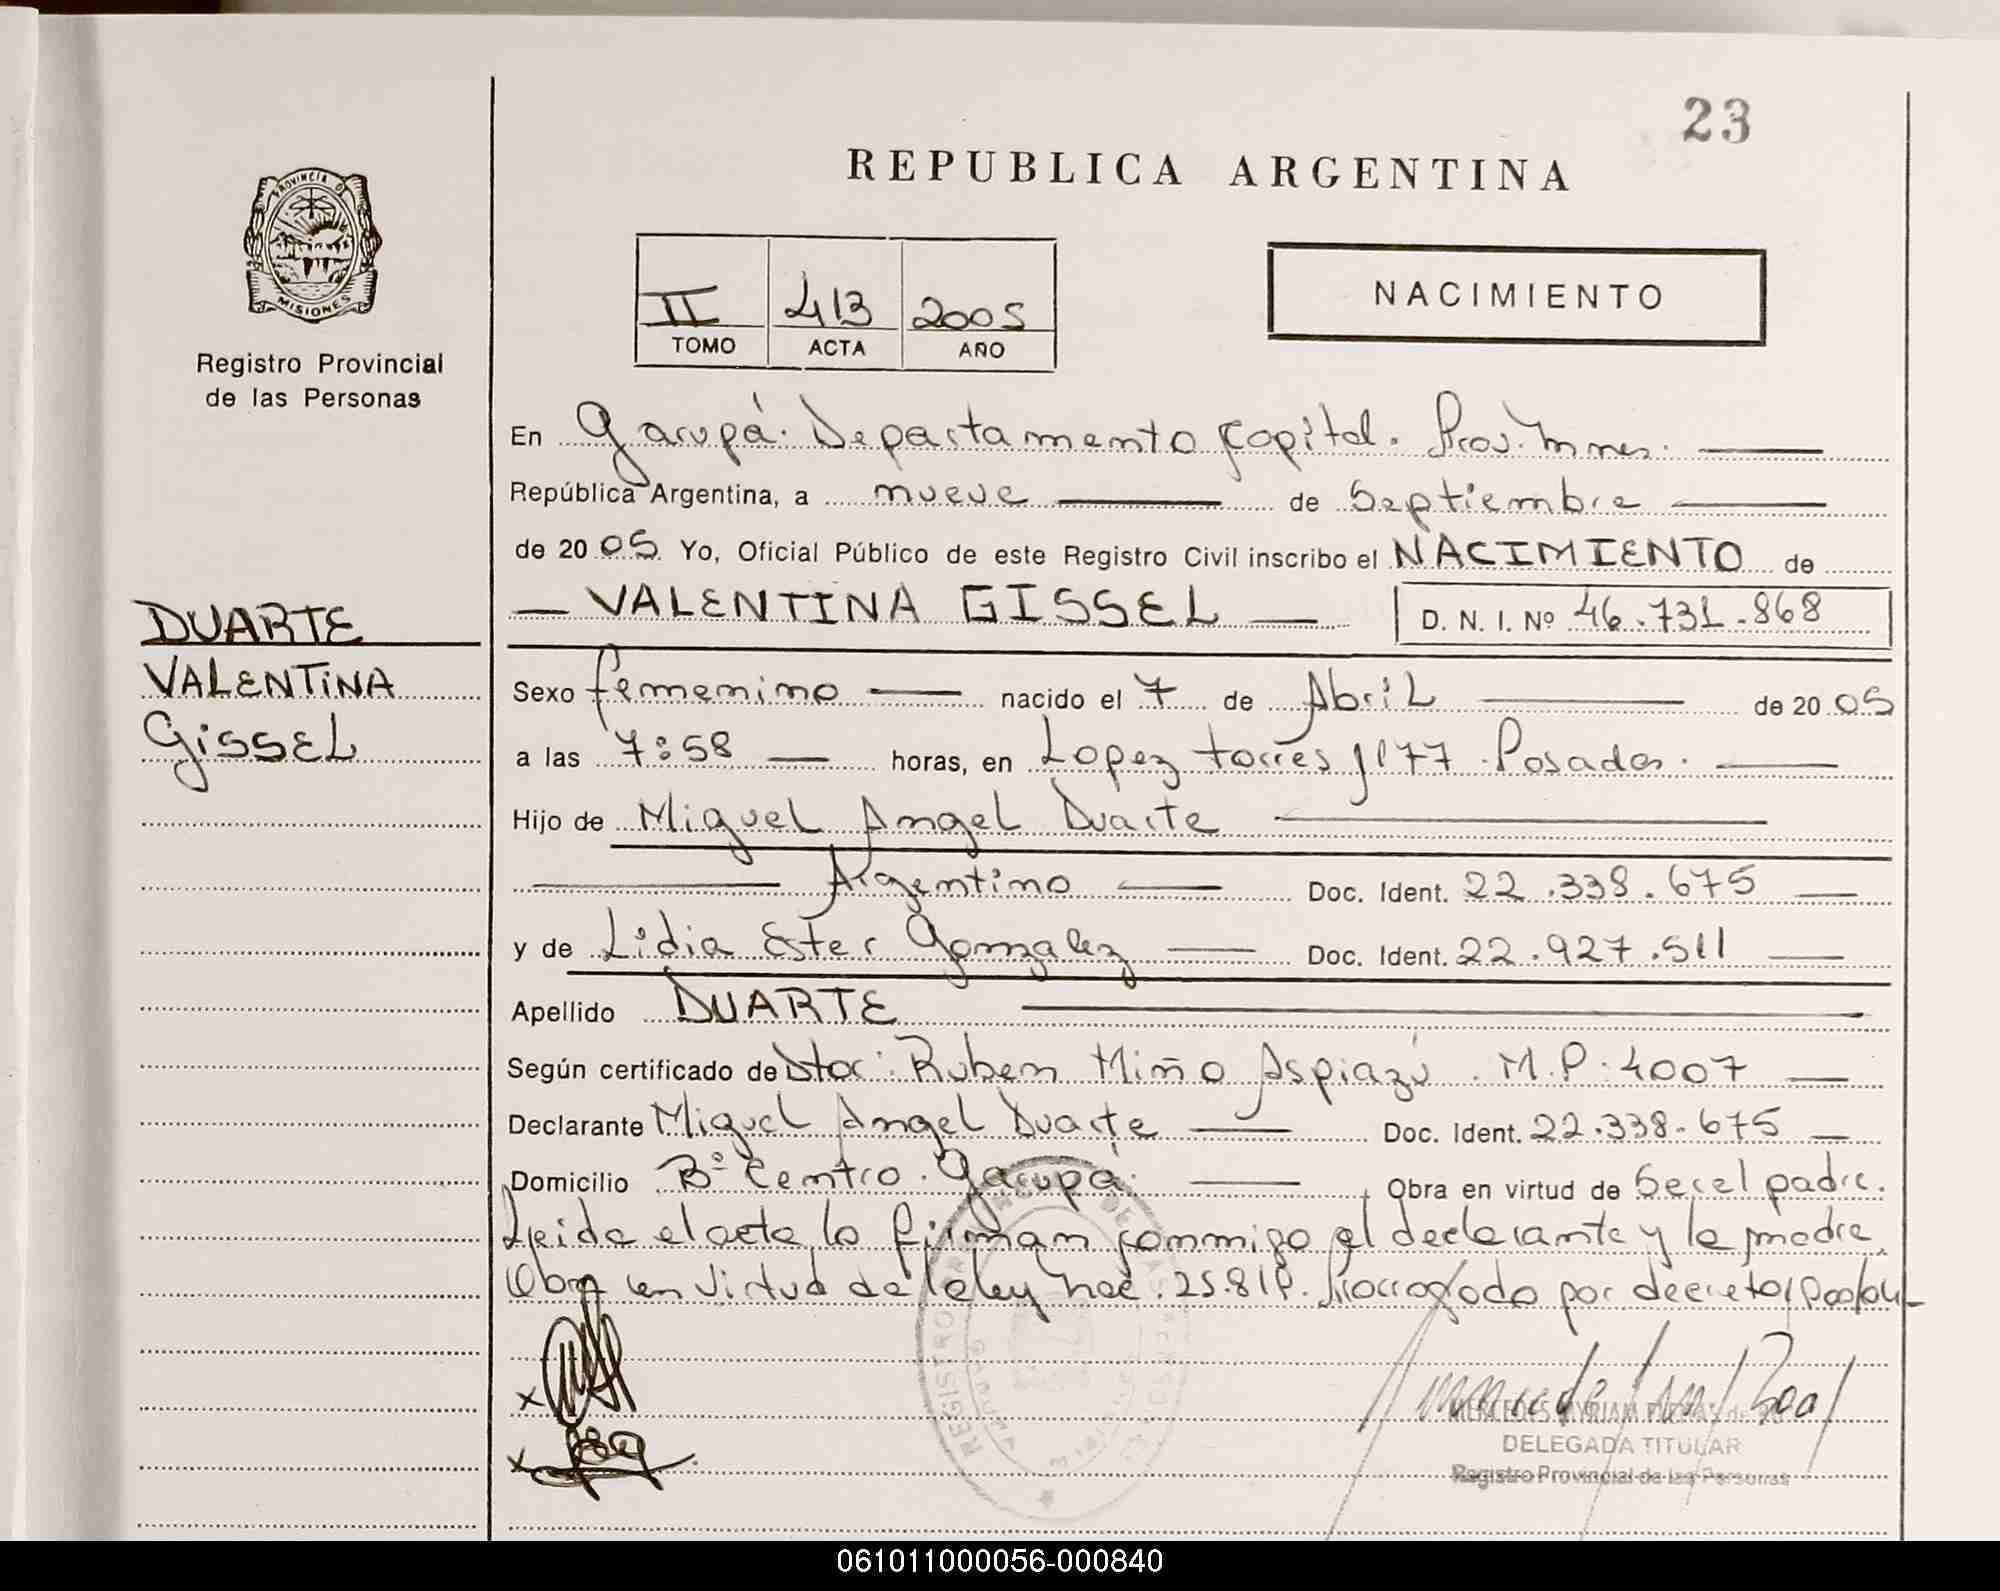 23
REPUBLICA ARGENTINA
PROVINCIA DE
MISIONES
Registro Provincial
de las Personas
II 413 2005
TOMO ACTA AÑO
NACIMIENTO
En Garupá. Departamento Capital. Prov. Mnes.
República Argentina, a nueve de Septiembre
de 2005 Yo, Oficial Público de este Registro Civil inscribo el NACIMIENTO de
VALENTINA GISSEL D. N. I. Nº 46.731.868
DUARTE
VALENTINA
GISSEL
Sexo femenino nacido el 7 de Abril de 2005
a las 7:58 horas, en Lopez torres 1177 Posadas.
Hijo de Miguel Angel Duarte
Argentino Doc. Ident. 22.338.675
y de Lidia Ester Gonzalez Doc. Ident. 22.927.511
Apellido DUARTE
Según certificado de Dtor: Ruben Miño Aspiazú. M.P: 4007
Declarante Miguel Angel Duarte Doc. Ident. 22.338.675
Domicilio Bº Centro. Garupá. Obra en virtud de Ser el padre.
Leida el acta, la firman conmigo el declarante y la madre.
Obra en virtud de la ley nac. 25.819. Prorrogada por decreto
x
x
MERCEDES MYRIAM
DELEGADA TITULAR
Registro Provincial de las Personas
061011000056-000840